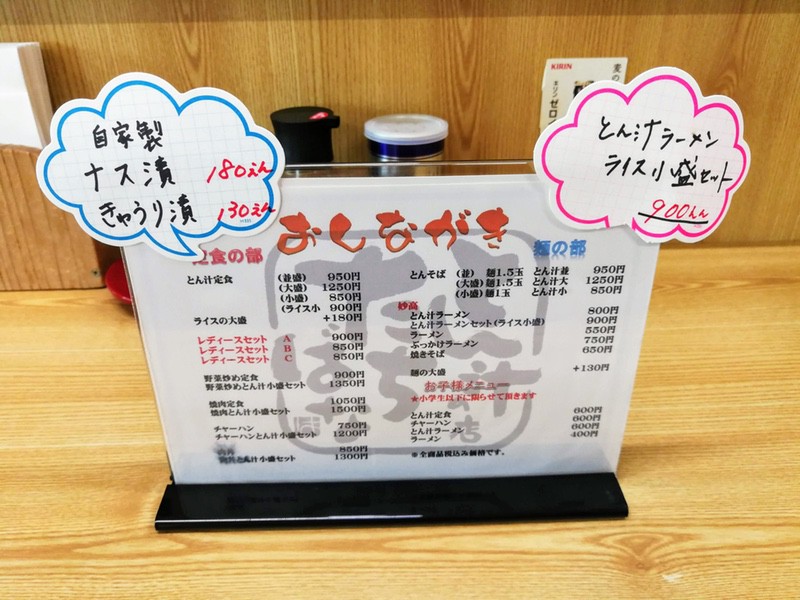 自家製
ナス漬 180えん
きゅうり漬 130えん
KIRIN
とん汁ラーメン
ライス小盛セット
900えん
おしながき
定食の部
とん汁定食 (並盛) 950円
(大盛) 1250円
(小盛) 850円
(ライス小 900円
ライスの大盛 +180円
レディースセット A 900円
レディースセット B 850円
レディースセット C 850円
野菜炒め定食 900円
野菜炒めとん汁小盛セット 1350円
焼肉定食 1050円
焼肉とん汁小盛セット 1500円
チャーハン 750円
チャーハンとん汁小盛セット 1200円
850円
とん汁小盛セット 1300円
麺の部
とんそば (並) 麺1.5玉 とん汁並 950円
(大盛) 麺1.5玉 とん汁大 1250円
(小盛) 麺1玉 とん汁小 850円
妙高
とん汁ラーメン 800円
とん汁ラーメンセット(ライス小盛) 900円
ラーメン 550円
ぶっかけラーメン 750円
焼きそば 650円
麺の大盛 +130円
お子様メニュー
★小学生以下に限らせて頂きます
とん汁定食 600円
チャーハン 600円
とん汁ラーメン 600円
ラーメン 400円
※全商品税込み価格です。